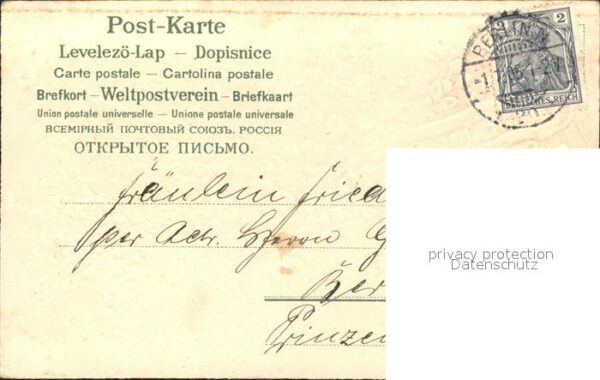 Post-Karte
Levelező-Lap — Dopisnice
Carte postale — Cartolina postale
Brefkort — Weltpostverein — Briefkaart
Union postale universelle — Unione postale universale
ВСЕМІРНЫЙ ПОЧТОВЫЙ СОЮЗЪ. РОССІЯ
ОТКРЫТОЕ ПИСЬМО.
2
BERLIN N.
DEUTSCHES REICH
Fräulein Fried
per Adr. Herrn G
Ber
Prinzen
privacy protection
Datenschutz